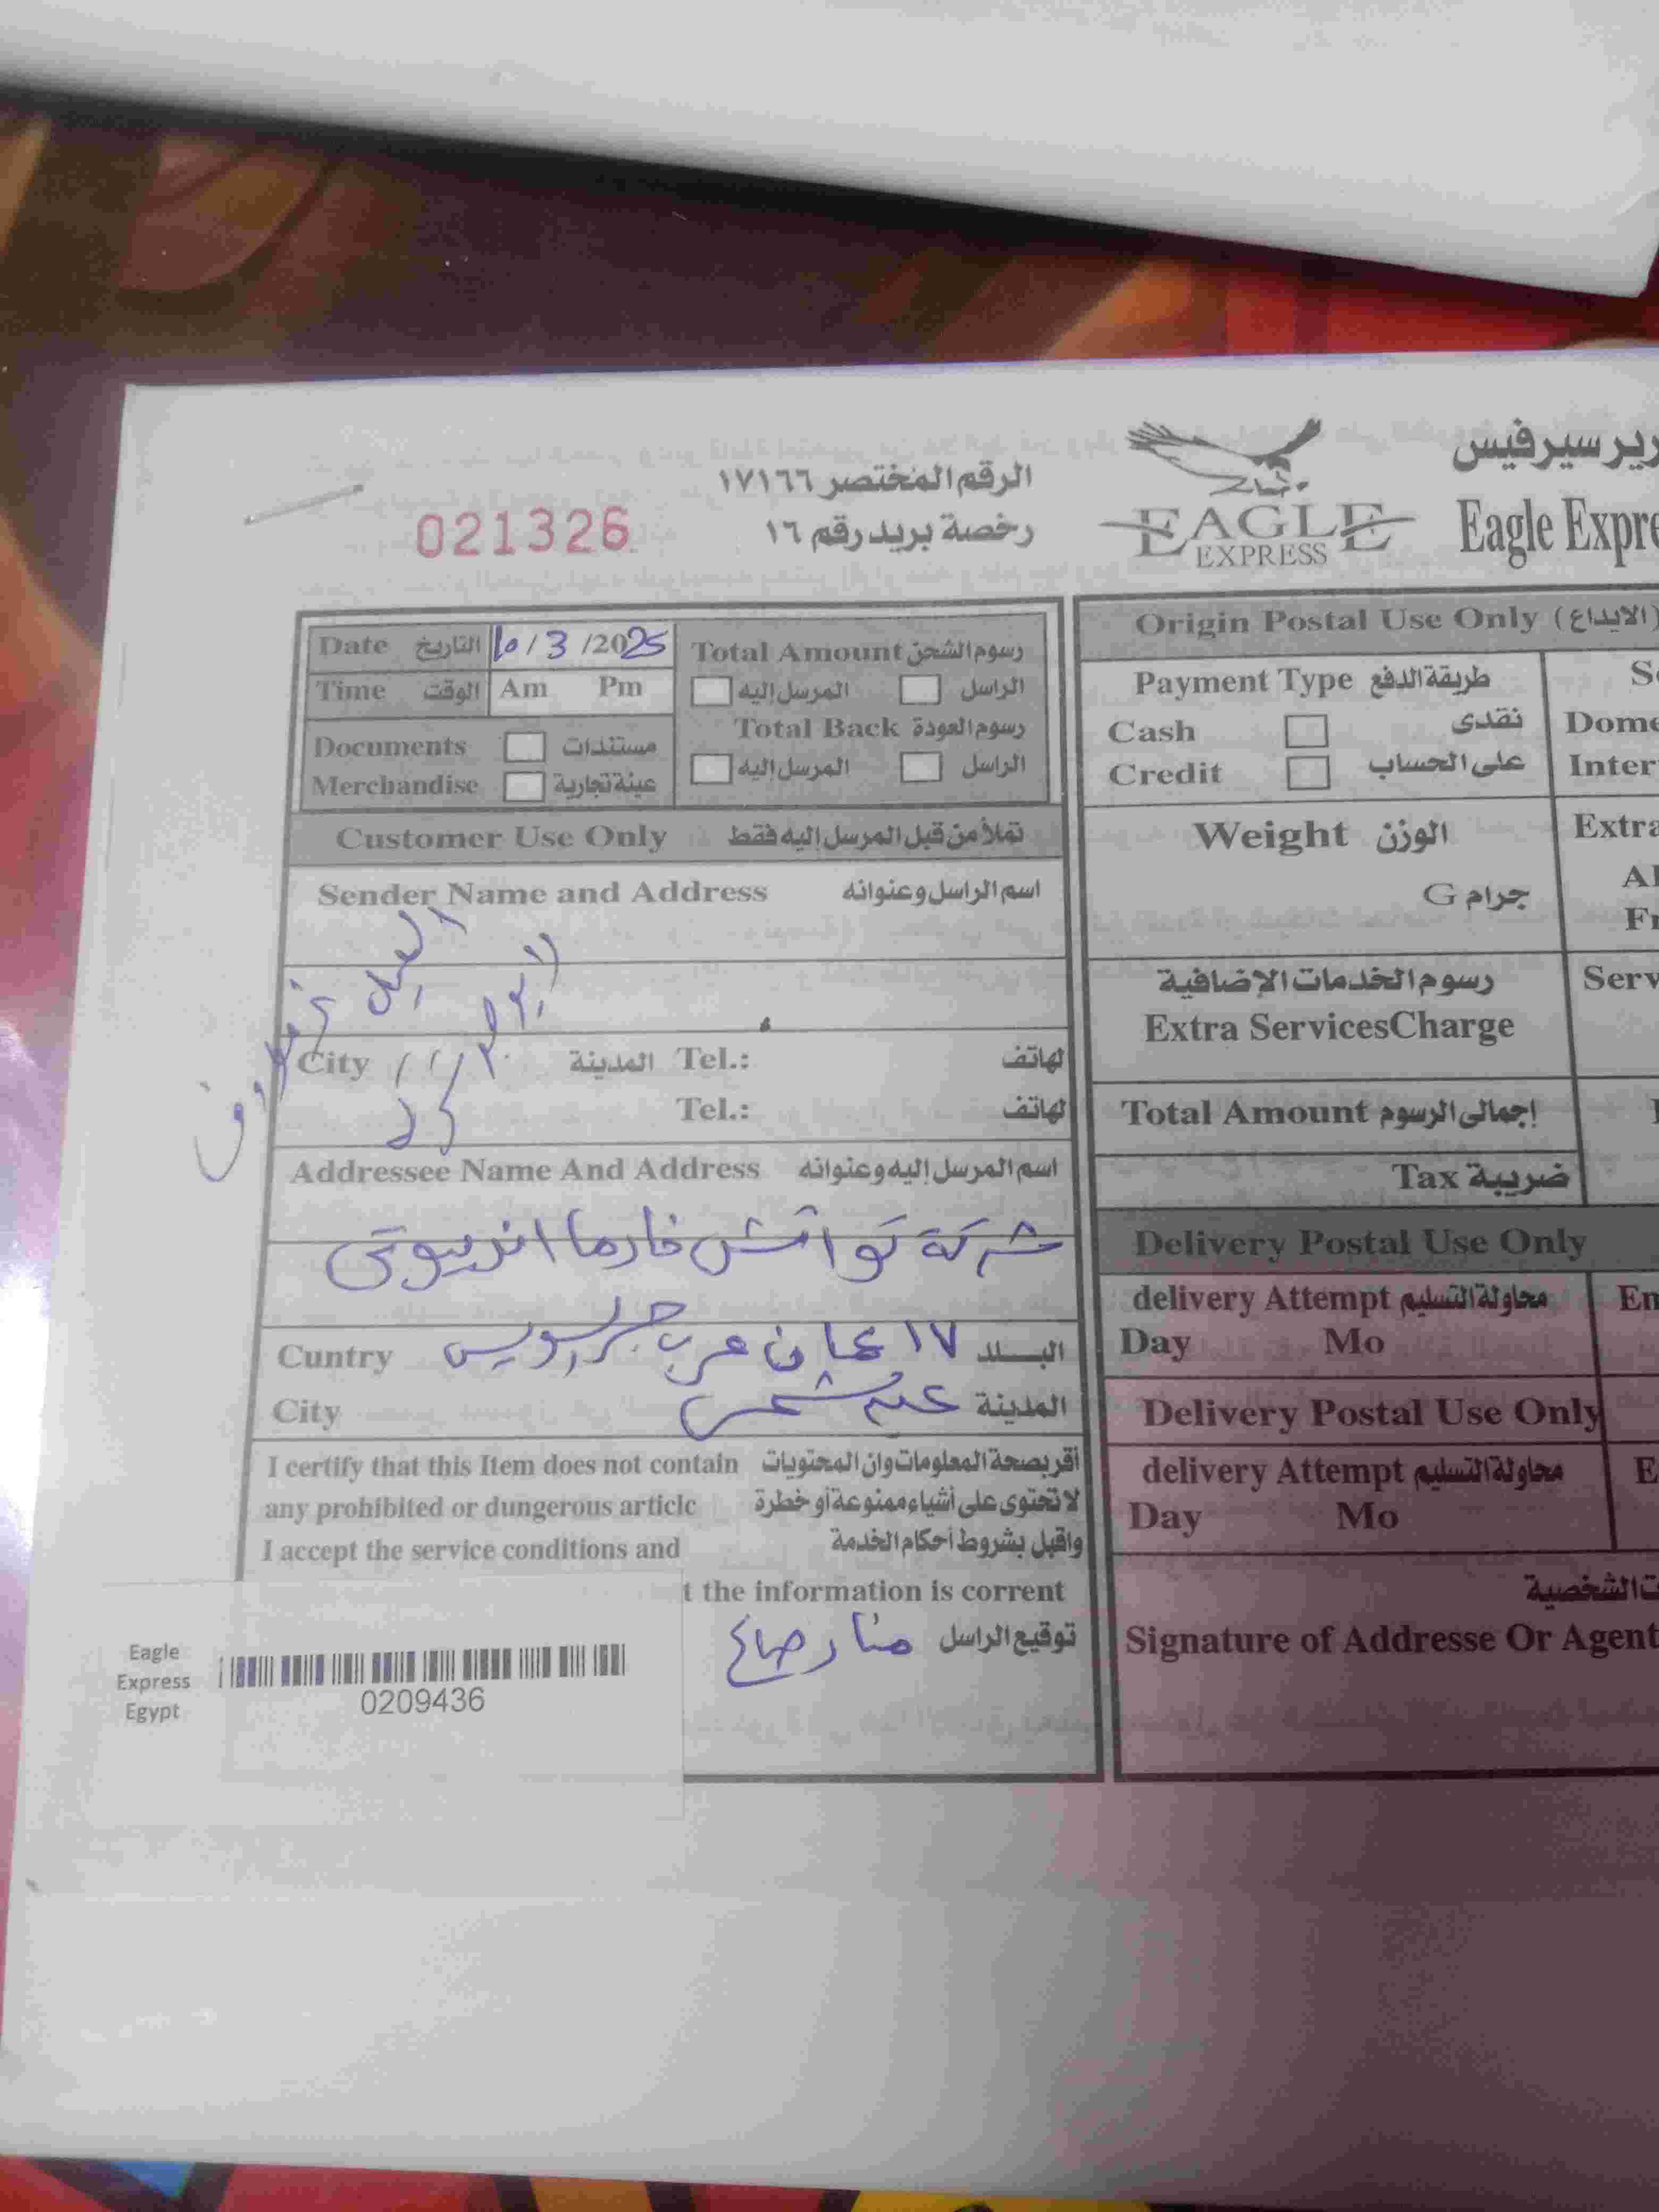 الرقم المختصر ١٧١٦٦
رخصة بريد رقم ١٦
021326
EAGLE
EXPRESS
رير سيرفيس
Eagle Expre
Date التاريخ 10/3/2025
Time الوقت Am Pm
Documents مستندات
Merchandise عينة تجارية
Total Amount رسوم الشحن
المرسل إليه الراسل
Total Back رسوم العودة
المرسل إليه الراسل
Customer Use Only تملأ من قبل المرسل إليه فقط
Sender Name and Address اسم الراسل وعنوانه
العميل
City المدينة Tel.: لهاتف
Tel.: لهاتف
Addressee Name And Address اسم المرسل إليه وعنوانه
شركة تواتش فارما اندبيوتى
Cuntry البـــلد ١٧ عمان عرب جسر السويس
City المدينة عين شمس
I certify that this Item does not contain أقر بصحة المعلومات وان المحتويات
any prohibited or dungerous article لا تحتوى على أشياء ممنوعة أو خطرة
I accept the service conditions and واقبل بشروط أحكام الخدمة
t the information is corrent
توقيع الراسل منار
Eagle
Express
Egypt
0209436
Origin Postal Use Only (الايداع)
Payment Type طريقة الدفع
Cash نقدى
Credit على الحساب
Dome
Inter
Weight الوزن
جرام G
Extra
Al
Fr
رسوم الخدمات الإضافية
Extra ServicesCharge
Serv
Total Amount إجمالى الرسوم
Tax ضريبة
Delivery Postal Use Only
delivery Attempt محاولة التسليم
Day Mo
En
Delivery Postal Use Only
delivery Attempt محاولة التسليم
Day Mo
E
ت الشخصية
Signature of Addresse Or Agent